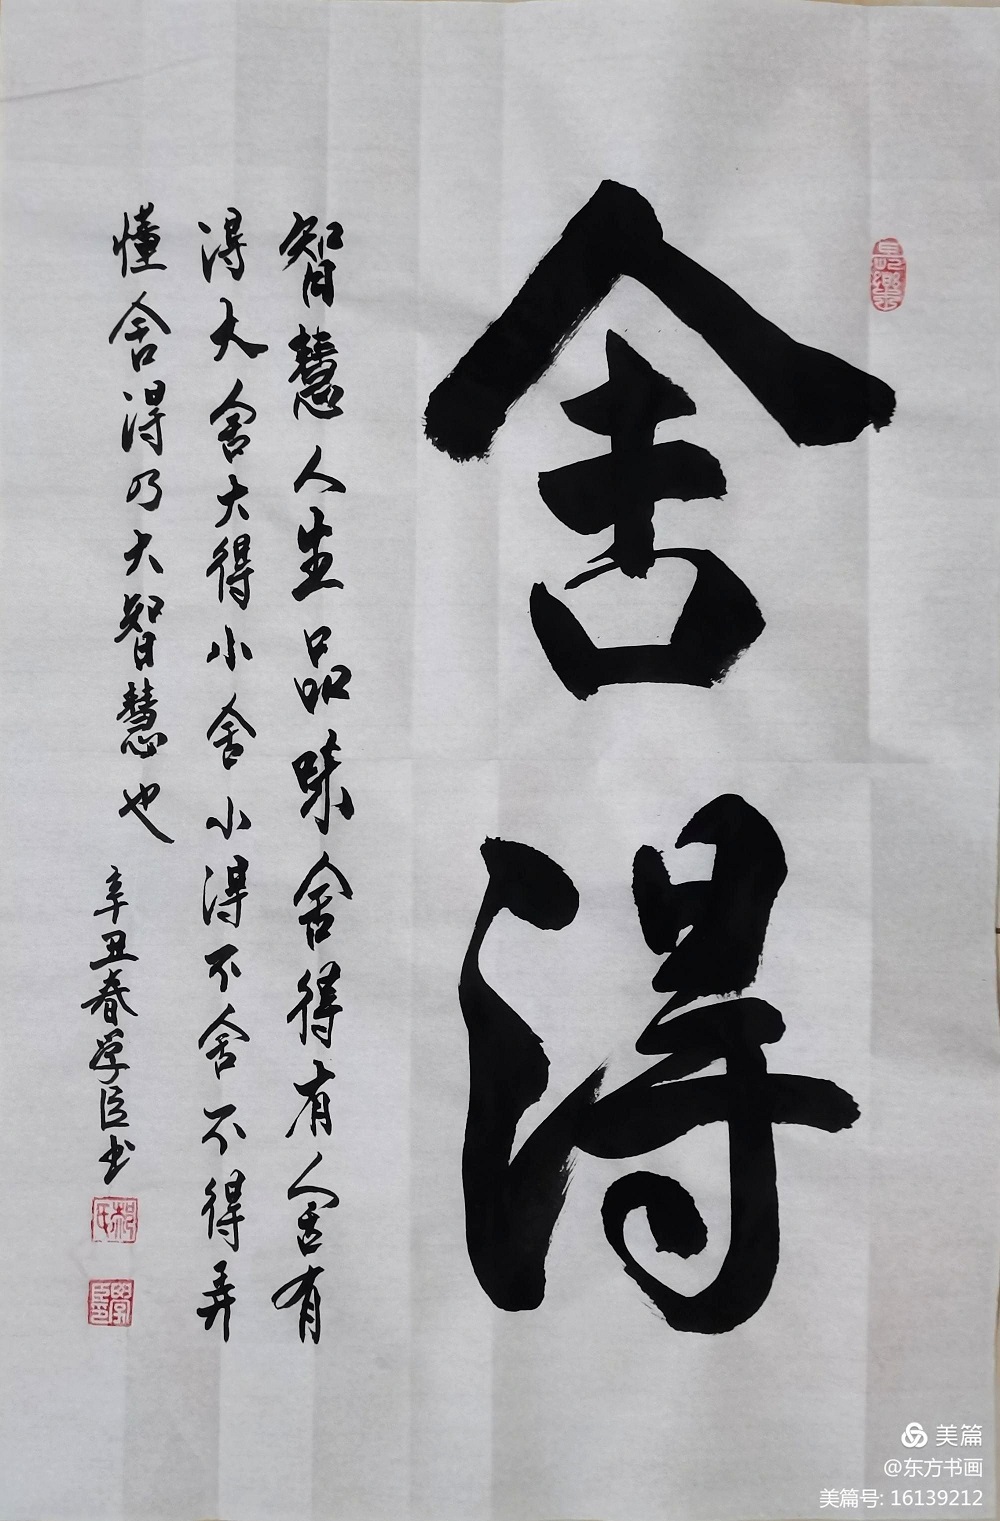 舍得
智慧人生品味舍得有舍有
得大舍大得小舍小得不舍不得弄
懂舍得乃大智慧也
辛丑春学臣书
郝氏
學臣印
美篇
@东方书画
美篇号: 16139212